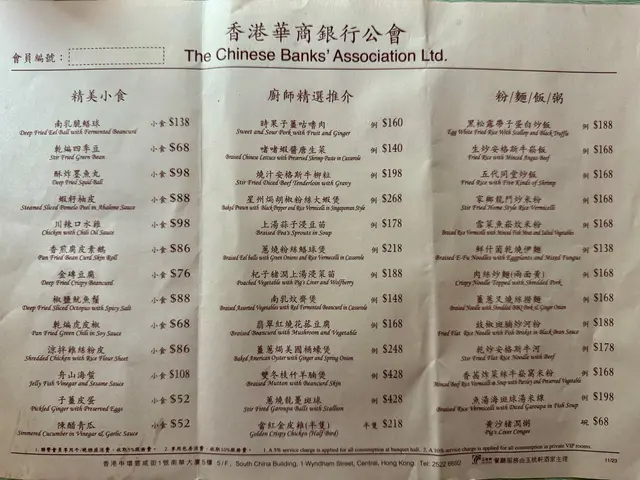 香港華商銀行公會
The Chinese Banks' Association Ltd.
會員編號：
精美小食
南乳脆鱔球 小食 $138
Deep Fried Eel Ball with Fermented Beancurd
乾煸四季豆 小食 $68
Stir Fried Green Bean
酥炸墨魚丸 小食 $98
Deep Fried Squid Ball
蝦籽柚皮 小食 $88
Steamed Sliced Pomelo Peel in Abalone Sauce
川辣口水雞 小食 $98
Chicken with Chili Oil Sauce
香煎腐皮素鵝 小食 $86
Pan Fried Bean Curd Skin Roll
金磚豆腐 小食 $76
Deep Fried Crispy Beancurd
椒鹽魷魚鬚 小食 $88
Deep Fried Sliced Octopus with Spicy Salt
乾煸虎皮椒 小食 $68
Pan Fried Green Chili in Soy Sauce
涼拌雞絲粉皮 小食 $86
Shredded Chicken with Rice Flour Sheet
舟山海蜇 小食 $108
Jelly Fish Vinegar and Sesame Sauce
子薑皮蛋 小食 $52
Pickled Ginger with Preserved Eggs
陳醋青瓜 小食 $52
Simmered Cucumber in Vinegar & Garlic Sauce
廚師精選推介
時果子薑咕嚕肉 例 $160
Sweet and Sour Pork with Fruit and Ginger
啫啫蝦醬唐生菜 例 $140
Braised Chinese Lettuce with Preserved Shrimp Paste in Casserole
燒汁安格斯牛柳粒 例 $198
Stir Fried Diced Beef Tenderloin with Gravy
星州焗胡椒粉絲大蝦煲 例 $268
Baked Prawn with Black Pepper and Rice Vermicelli in Singaporean Style
上湯蒜子浸豆苗 例 $178
Braised Pea's Sprouts in Soup
蔥燒粉絲鱔球煲 例 $218
Braised Eel balls with Green Onions and Rice Vermicelli in Casserole
杞子豬潤上湯浸菜苗 例 $188
Poached Vegetable with Pig's Liver and Wolfberry
南乳炆齋煲 例 $148
Braised Assorted Vegetables with Red Fermented Beancurd in Casserole
翡翠紅燒花菇豆腐 例 $168
Braised Beancurd with Mushroom and Vegetable
薑蔥焗美國桶蠔煲 例 $248
Baked American Oyster with Ginger and Spring Onion
雙冬枝竹羊腩煲 例 $428
Braised Mutton with Beancurd Skin
蔥燒龍躉斑球 例 $428
Stir Fried Garoupa Balls with Scallion
當紅金皮雞(半隻) 半隻 $218
Golden Crispy Chicken (Half Bird)
粉/麵/飯/粥
黑松露帶子蛋白炒飯 例 $188
Egg White Fried Rice With Scallop and Black Truffle
生炒安格斯牛崧飯 例 $168
Fried Rice with Minced Angus Beef
五代同堂炒飯 例 $168
Fried Rice with Five Kinds of Shrimp
家鄉龍門炒米粉 例 $168
Stir Fried Home Style Rice Vermicelli
雪菜魚崧炆米粉 例 $168
Braised Rice Vermicelli with Minced Fish Meat and Salted Vegetables
鮮什菌乾燒伊麵 例 $138
Braised E-Fu Noodles with Eggplants and Mixed Fungus
肉絲炒麵(兩面黃) 例 $168
Crispy Noodle Topped with Shredded Pork
薑蔥叉燒絲撈麵 例 $168
Braised Noodle with Shredded BBQ Pork & Ginger Onion
豉椒斑腩炒河粉 例 $188
Fried Flat Rice Noodle with Fish Bridge in Black Bean Sauce
乾炒安格斯牛河 例 $178
Stir Fried Flat Rice Noodle with Beef
香茜炸菜絲牛崧窩米粉 例 $168
Minced Beef Rice Vermicelli in Soup with Parsley and Preserved Vegetable
魚湯海斑球湯米線 例 $198
Braised Rice Vermicelli with Diced Garoupa in Fish Soup
黃沙豬潤粥 碗 $68
Pig's Liver Congee
1. A 5% service charge is applied for all consumption at banquet hall. 2. A 10% service charge is applied for all consumption in private VIP rooms.
香港中環雲咸街1號南華大廈5樓 5/F, South China Building, 1 Wyndham Street, Central, Hong Kong Tel: 2522 8692
餐廳服務由玉桃軒酒家主理
11/23